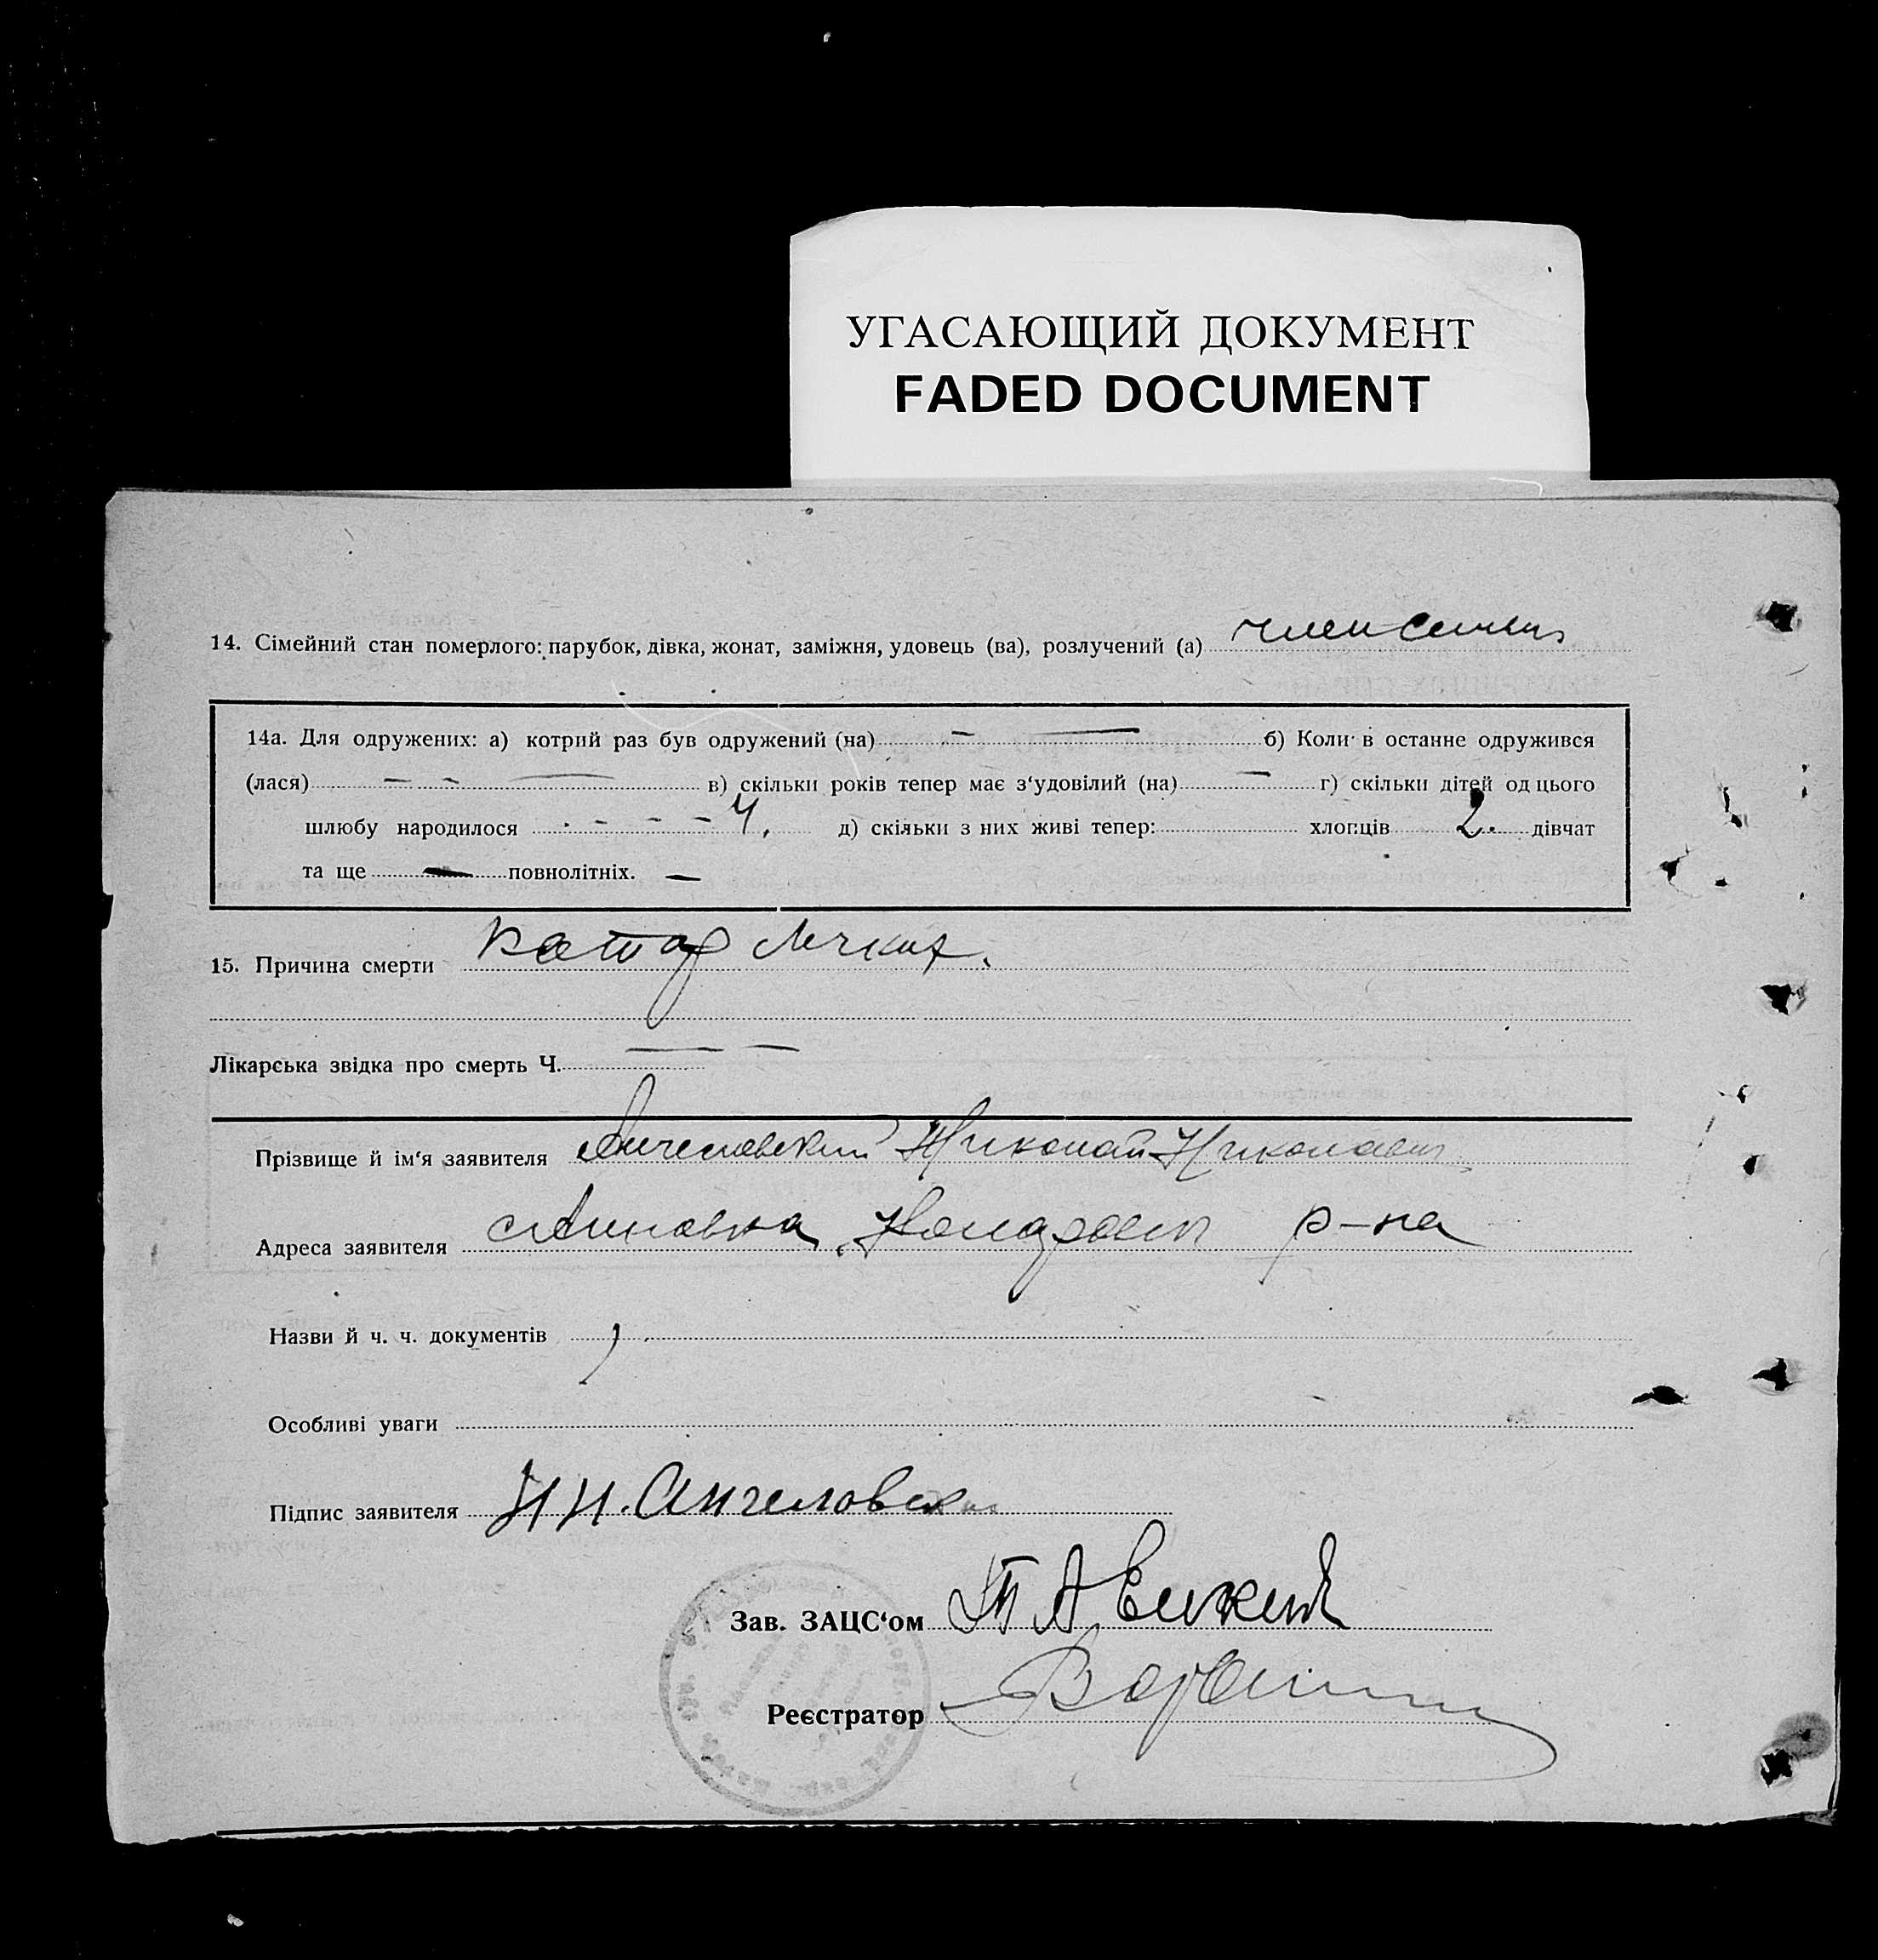 УГАСАЮЩИЙ ДОКУМЕНТ
FADED DOCUMENT
14. Сімейний стан померлого: парубок, дівка, жонат, заміжня, удовець (ва), розлучений (а) член семьи
14а. Для одружених: а) котрий раз був одружений (на) — — б) Коли в останнє одружився
(лася) — — — в) скільки років тепер має з‘удовілий (на) — г) скільки дітей од цього
шлюбу народилося - - - - 4. д) скільки з них живі тепер: хлопців 2. дівчат
та ще — повнолітніх. —
15. Причина смерти Катар легких.
Лікарська звідка про смерть Ч. — —
Прізвище й ім‘я заявителя Ангеловский Николай Николаевич
Адреса заявителя с Анновка, р-на
Назви й ч. ч. документів
Особливі уваги
Підпис заявителя Н Н. Ангеловский
Зав. ЗАЦС‘ом
Реєстратор